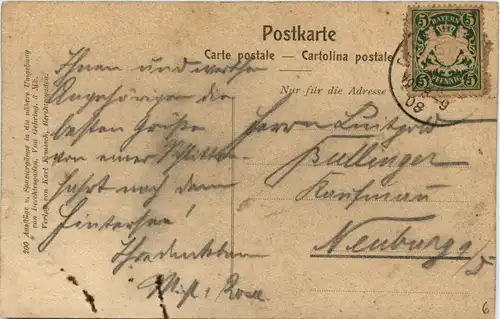 Postkarte
Carte postale — Cartolina postale
Nur für die Adresse
BAYERN
5 5
PFENNIG
08
200 Ausflüge u. Spaziergänge in die nähere Umgebung
von Berchtesgaden. Von Gehring. 3 Mk.
Verlag von Karl Ermisch, Berchtesgaden.
Ihnen und werthe
Angehörigen die
besten Grüße
von einer Schlitten-
fahrt nach dem
Hintersee!
Ihre dankbare
Herrn Luitpold
Bullinger
Kaufmann
Neuburg a/D
6